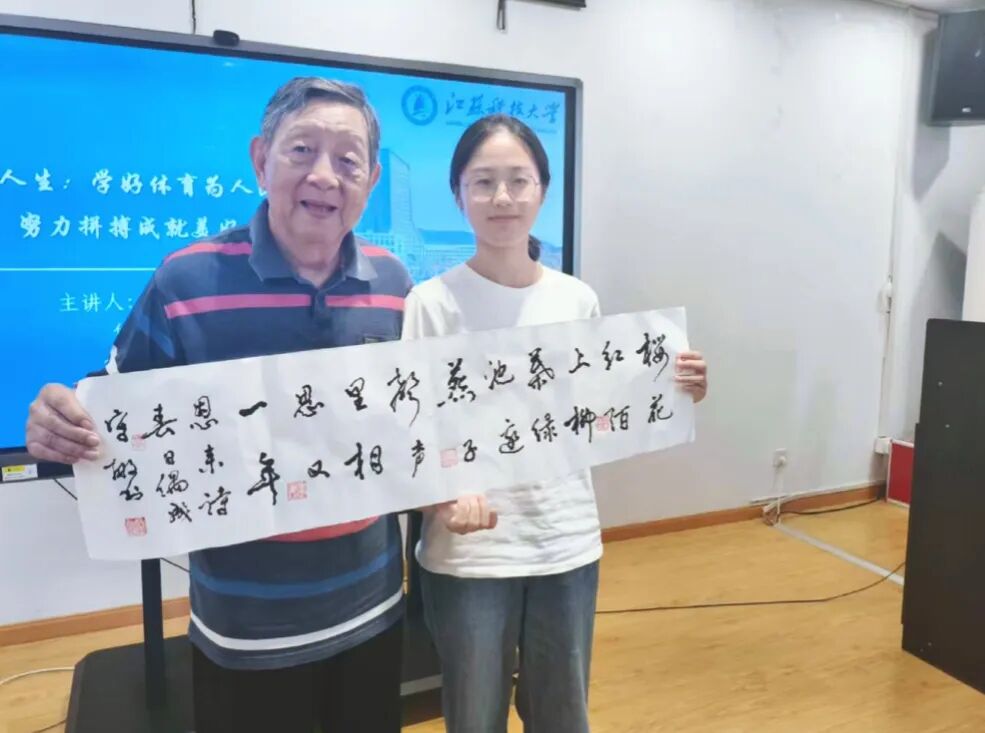 江苏科技大学
人生：学好体育为人
努力拼搏成就美好
主讲人：
桜花
红陌
上柳
葉绿
池边
燕子
声声
里相
思又
一年
恩来诗
春日偶成